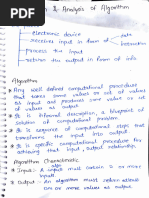 & Analysis of Algorithm
electronic device
receives input in form of data
instruction
process the input
return the output in form of info
Algorithm
Any well defined computational procedure
some values or set of values
as input and produces some value or set
of values as output
It is informal description, a blueprint of
solution of computational problem
It is sequence of computational steps that
transforms the input into output
It is specific computational procedure for
achieving that input output relationship
Algorithm Characteristic
Input: A input must contain 0 or more
Output: algorithm must contain at least
one or more values as output